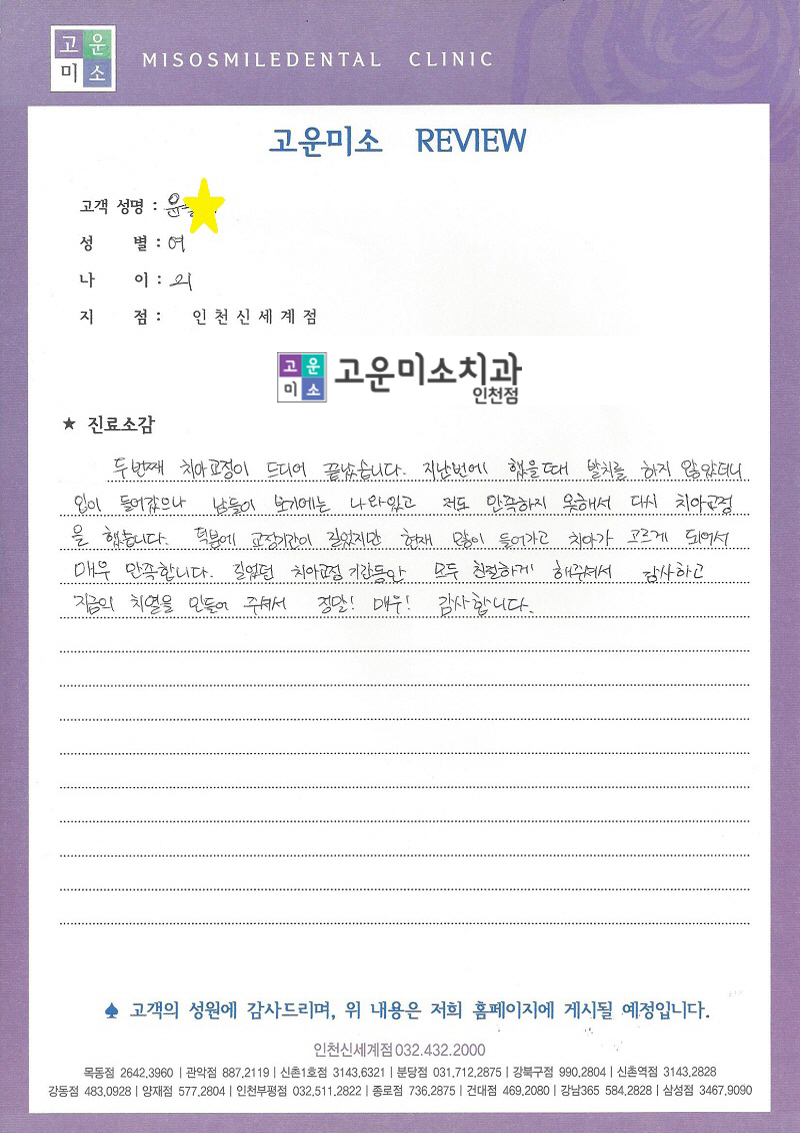 고운
미소
MISOSMILEDENTAL CLINIC
고운미소 REVIEW
고객 성명 : 윤
성 별 : 여
나 이 : 21
지 점 : 인천신세계점
고운
미소
고운미소치과
인천점
★ 진료소감
두번째 치아교정이 드디어 끝났습니다. 지난번에 했을때 발치를 하지 않았더니
입이 들어갔으나 남들이 보기에는 나와있고 저도 만족하지 못해서 다시 치아교정
을 했습니다. 덕분에 교정기간이 길었지만 현재 많이 들어가고 치아가 고르게 되어서
매우 만족합니다. 길었던 치아교정 기간동안 모두 친절하게 해주셔서 감사하고
지금의 치열을 만들어 주셔서 정말! 매우! 감사합니다.
♠ 고객의 성원에 감사드리며, 위 내용은 저희 홈페이지에 게시될 예정입니다.
인천신세계점 032.432.2000
목동점 2642.3960 | 관악점 887.2119 | 신촌1호점 3143.6321 | 분당점 031.712.2875 | 강북구점 990.2804 | 신촌역점 3143.2828
강동점 483.0928 | 양재점 577.2804 | 인천부평점 032.511.2822 | 종로점 736.2875 | 건대점 469.2080 | 강남365 584.2828 | 삼성점 3467.9090